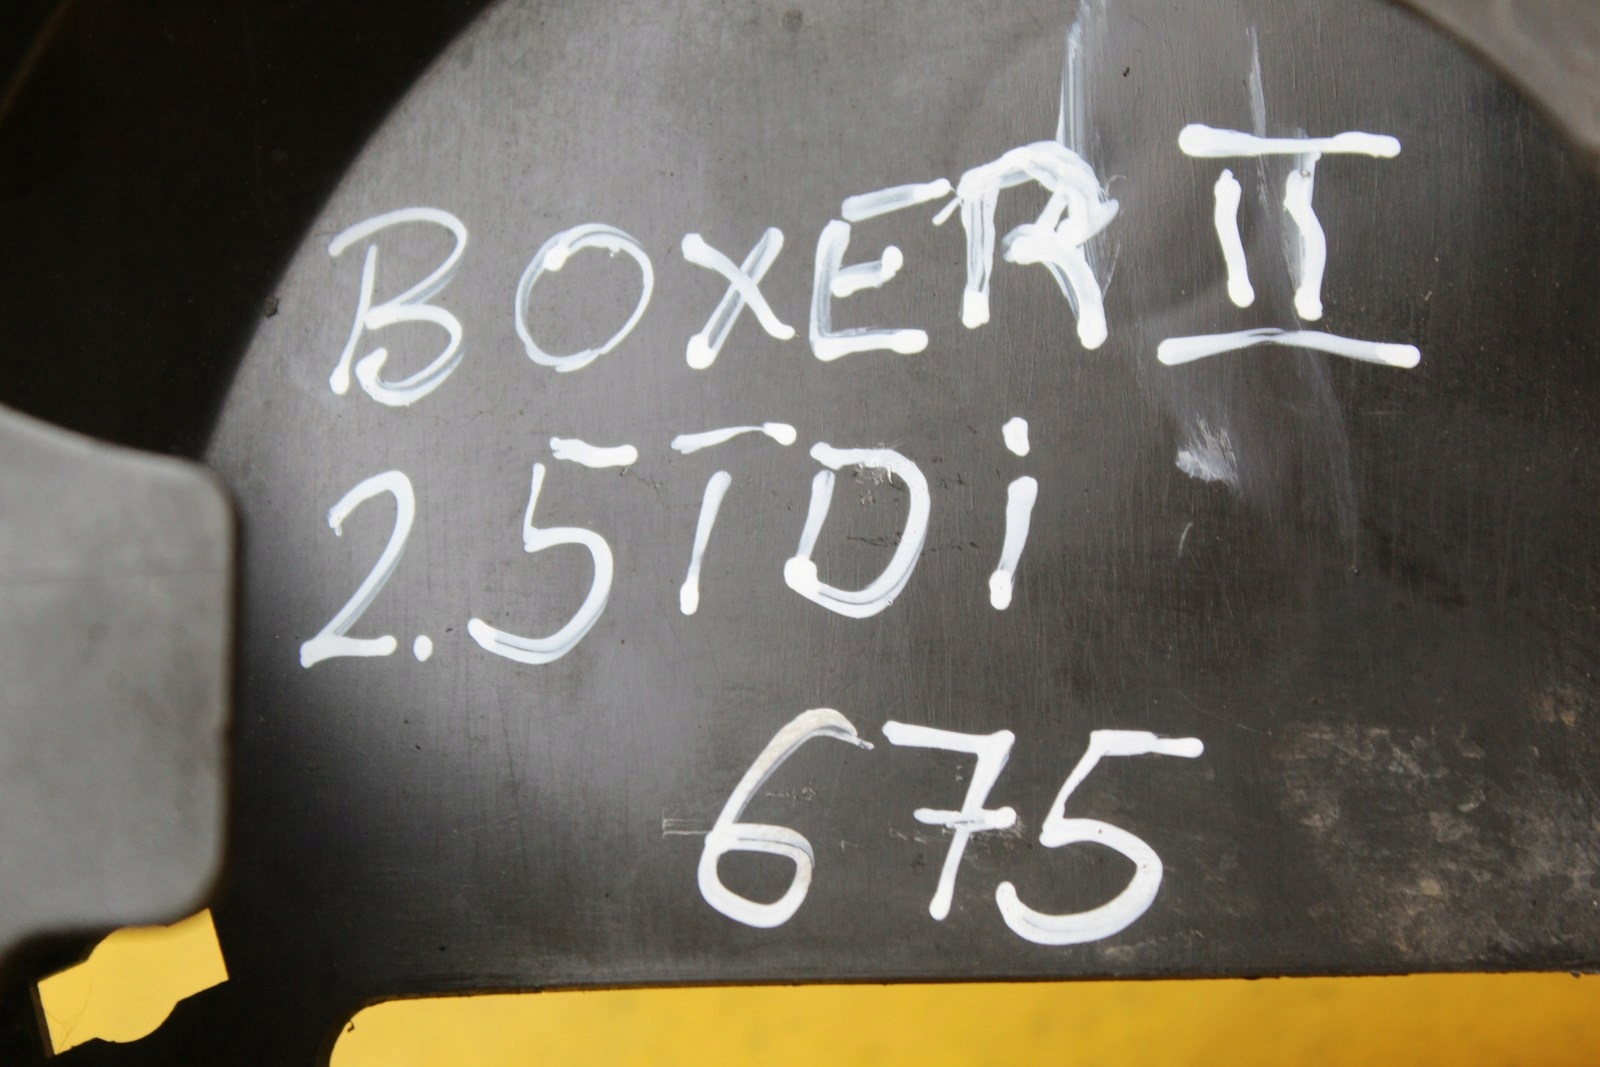 BOXER II
2.5 TDi
675